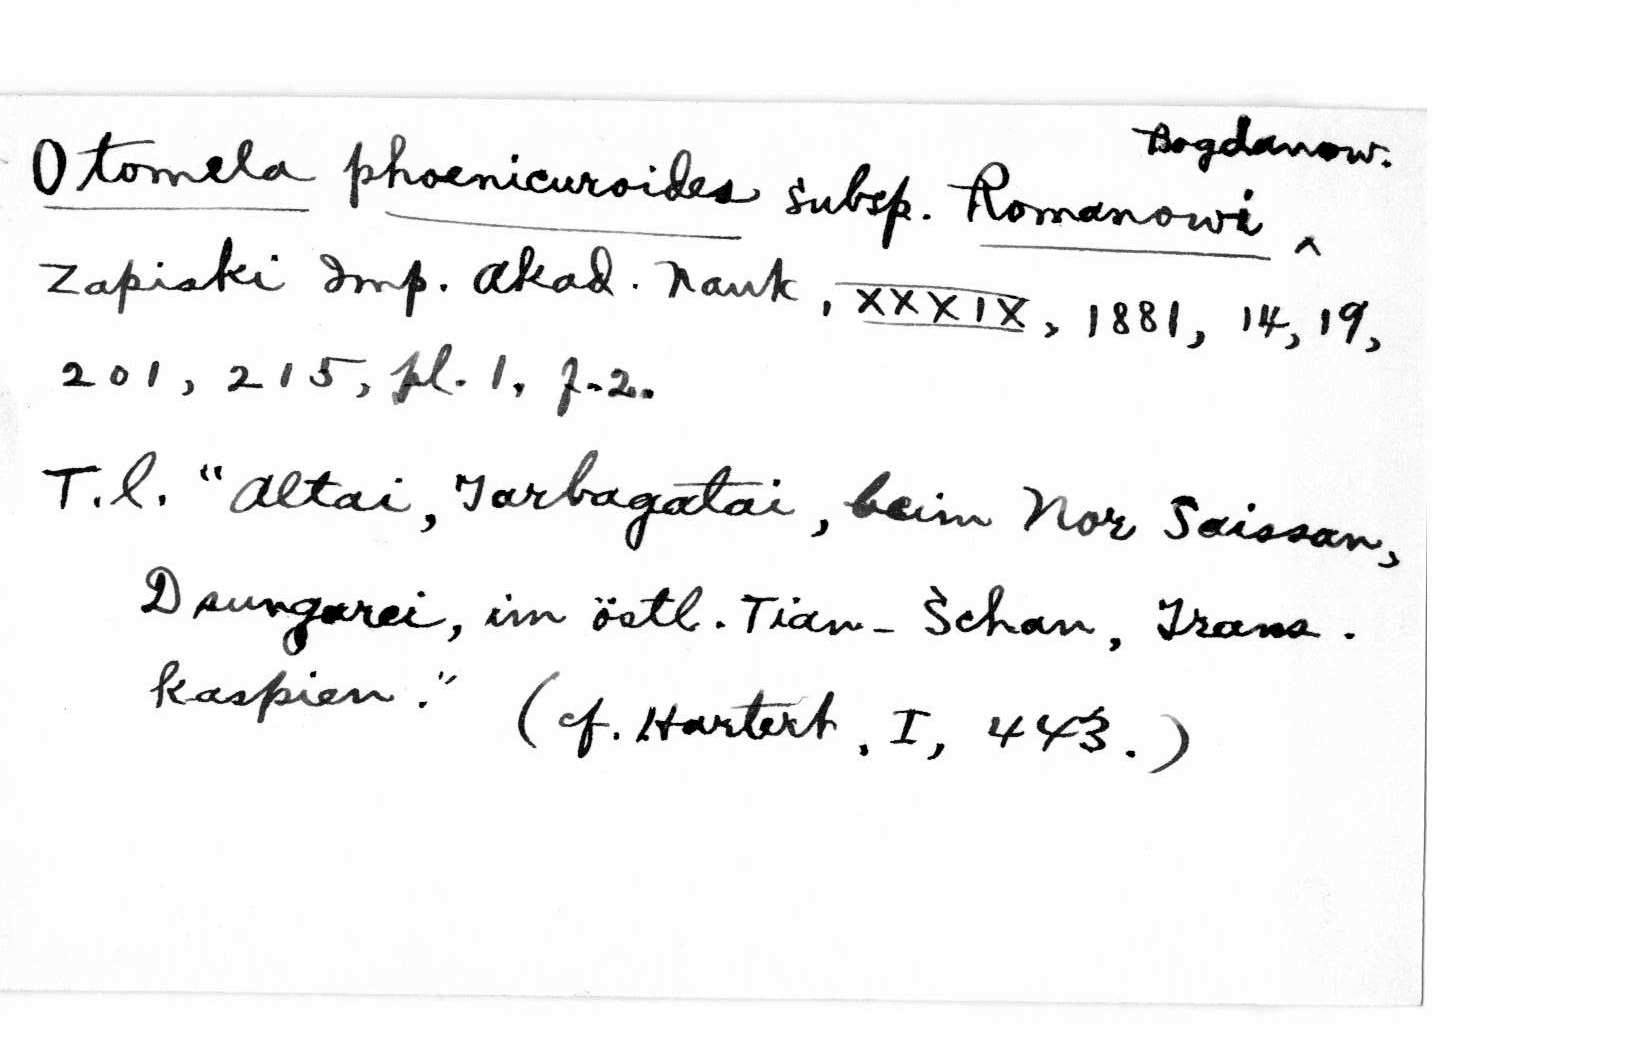 Otomela phoenicuroides subsp. Romanowi ^ Bogdanow.
Zapiski Imp. Akad. Nauk, XXXIX, 1881, 14, 19,
201, 215, pl. 1, f. 2.
T.l. "Altai, Tarbagatai, beim Nor Saissan,
Dsungarei, im östl. Tian-Schan, Trans-
kaspien." (cf. Hartert, I, 443.)